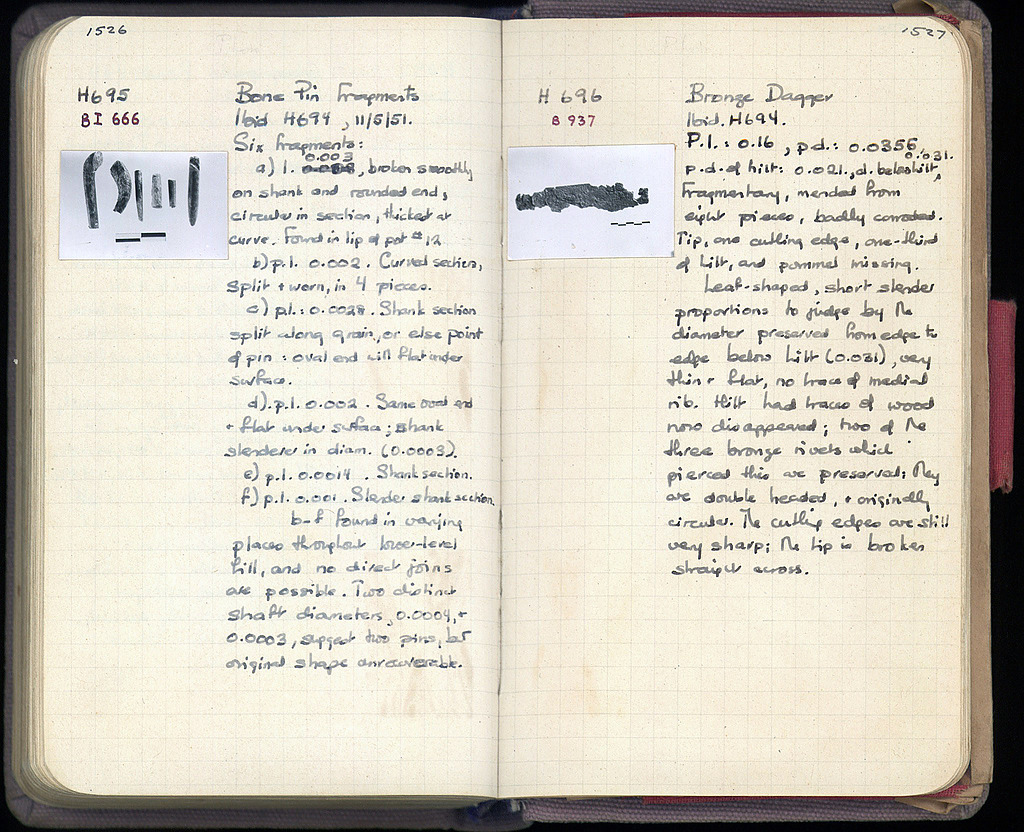 1526
H695
BI 666
Bone Pin Fragments
Ibid H694, 11/5/51.
Six fragments:
0.003
a) l. , broken smoothly
on shank and rounded end,
circular in section, thickest at
curve. Found in lip of pot #12
b) p.l. 0.002. Curved section,
split + worn, in 4 pieces.
c) p.l.: 0.0028. Shank section
split along grain, or else point
of pin: oval end with flat under
surface.
d). p.l. 0.002. Same oval end
+ flat under surface; shank
slenderer in diam. (0.0003).
e) p.l. 0.0014. Shank section.
f) p.l. 0.001. Slender shank section.
b-f found in varying
places throughout lower-level
fill, and no direct joins
are possible. Two distinct
shaft diameters, 0.0004, +
0.0003, suggest two pins, but
original shape unrecoverable.
1527
H 696
B 937
Bronze Dagger
Ibid. H694.
P.l.: 0.16, p.d.: 0.0356,
p.d. of hilt: 0.021, d. below hilt, 0.031.
Fragmentary, mended from
eight pieces, badly corroded.
Tip, one cutting edge, one-third
of hilt, and pommel missing.
Leaf-shaped, short slender
proportions to judge by the
diameter preserved from edge to
edge below hilt (0.031), very
thin + flat, no trace of medial
rib. Hilt had traces of wood
now disappeared; two of the
three bronze rivets which
pierced this are preserved: they
are double headed, + originally
circular. The cutting edges are still
very sharp; the tip is broken
straight across.